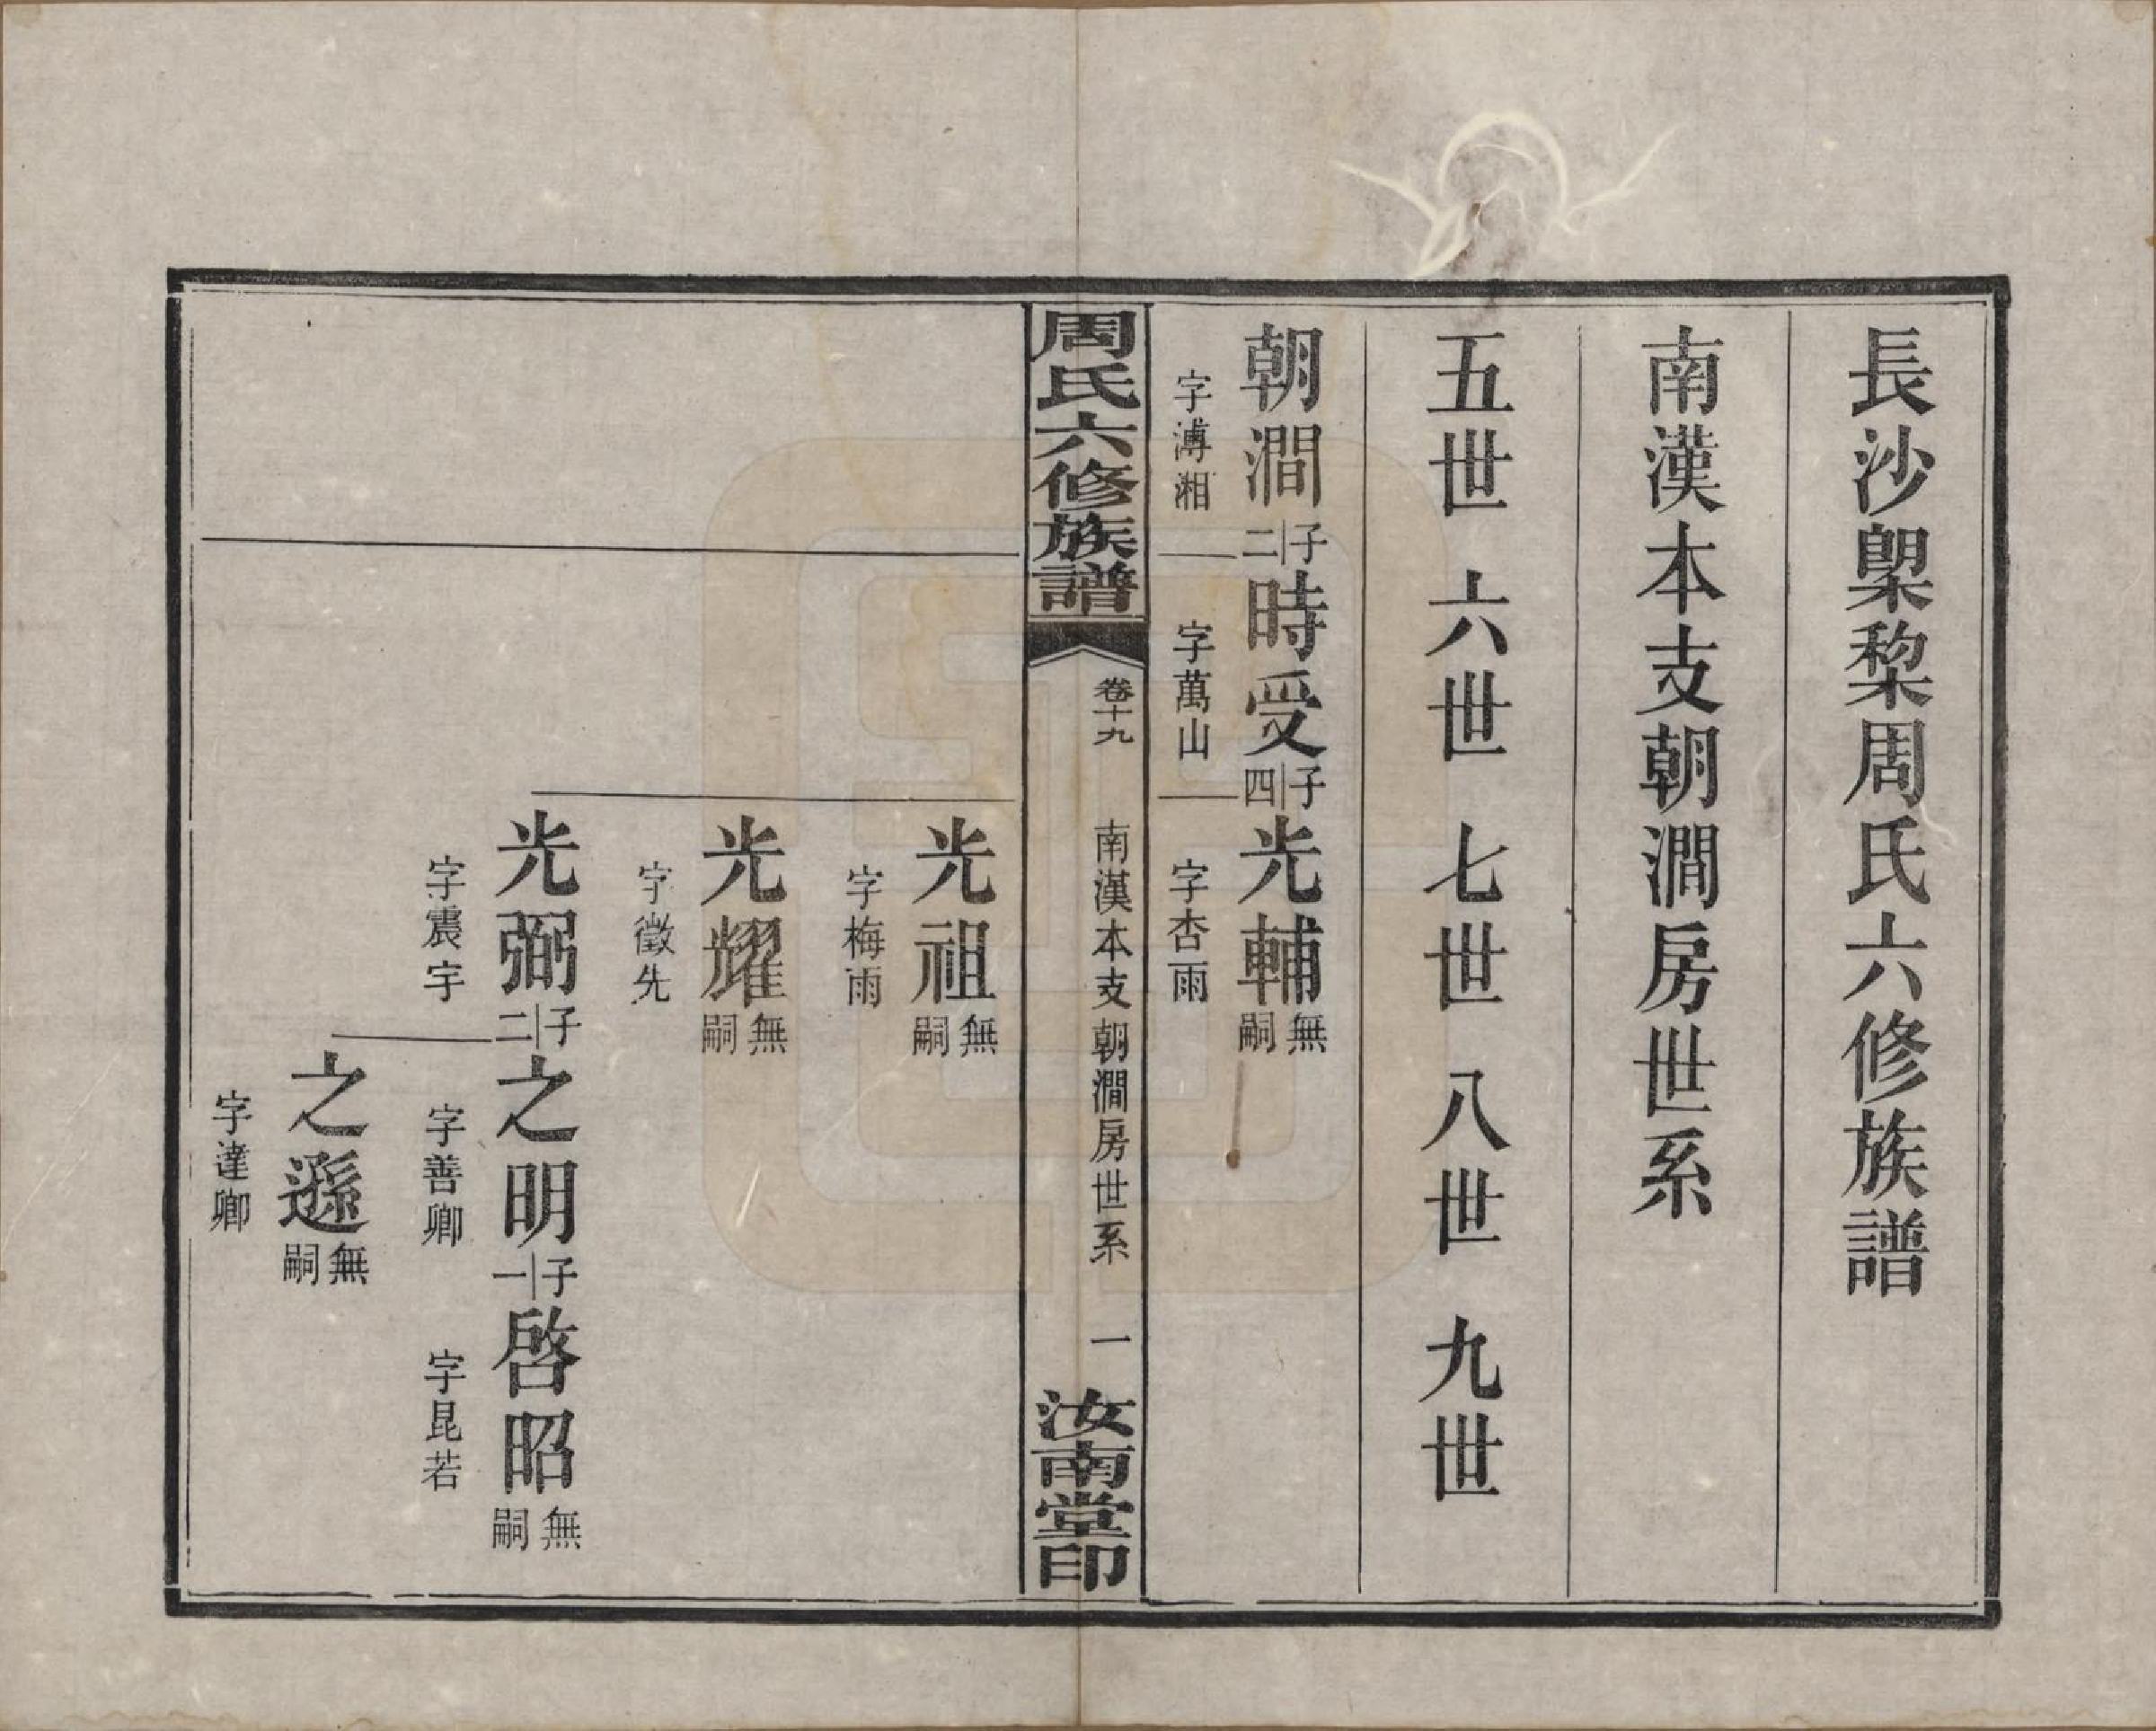 長沙㮚棃周氏六修族譜
南漢本支朝澗房世系
五世 六世 七世 八世 九世
朝澗 子二 時受 子四 光輔 無嗣
字溥湘 字萬山 字杏雨
周氏六修族譜 卷十九 南漢本支朝澗房世系 一 汝南堂印
光祖 無嗣
字梅雨
光耀 無嗣
字徵先
光弼 子二 之明 子一 啓昭 無嗣
字震宇 字善卿 字昆若
之遜 無嗣
字達卿